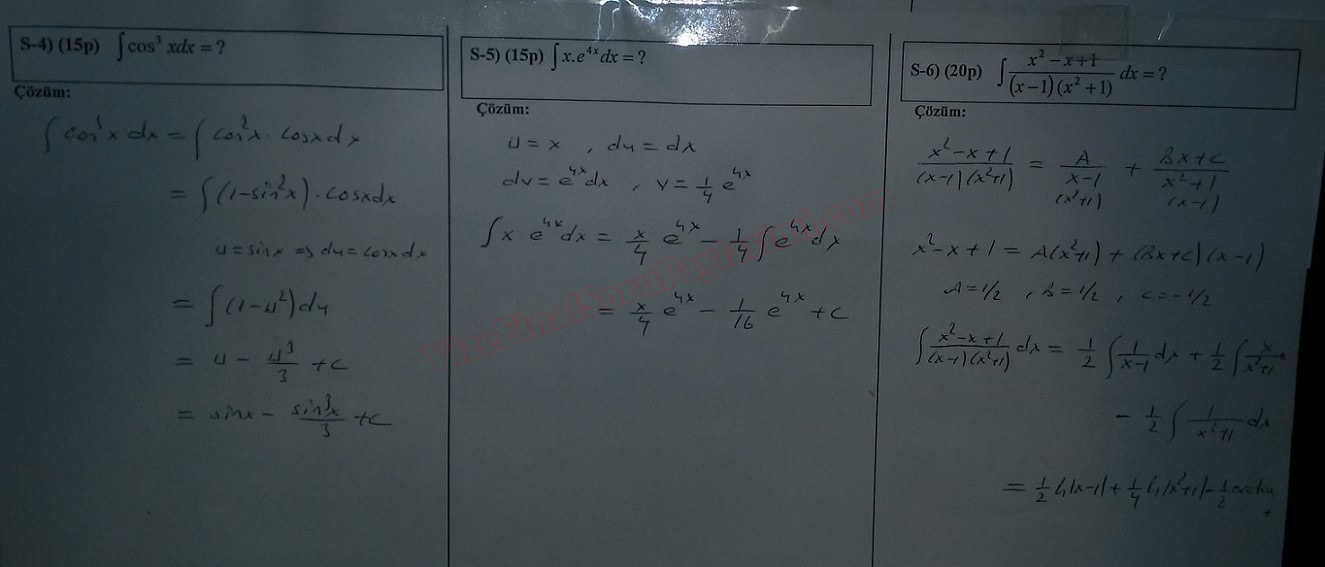 S-4) (15p) ∫cos³ xdx = ?
Çözüm:
∫cos³x dx = ∫cos²x · cosx dx
= ∫(1-sin²x) · cosx dx
u = sinx ⇒ du = cosx dx
= ∫(1-u²)du
= u - u³/3 + c
= sinx - sin³x/3 + c
S-5) (15p) ∫x.e⁴ˣ dx = ?
Çözüm:
u = x , du = dx
dv = e⁴ˣ dx , v = 1/4 e⁴ˣ
∫x e⁴ˣ dx = x/4 e⁴ˣ - 1/4 ∫e⁴ˣ dx
= x/4 e⁴ˣ - 1/16 e⁴ˣ + c
S-6) (20p) ∫ (x² - x + 1)/((x - 1)(x² + 1)) dx = ?
Çözüm:
(x² - x + 1)/((x-1)(x²+1)) = A/(x-1) + (Bx+C)/(x²+1)
(x²+1) (x-1)
x² - x + 1 = A(x²+1) + (Bx+C)(x-1)
A = 1/2 , B = 1/2 , C = -1/2
∫ (x² - x + 1)/((x-1)(x²+1)) dx = 1/2 ∫ 1/(x-1) dx + 1/2 ∫ x/(x²+1)
- 1/2 ∫ 1/(x²+1) dx
= 1/2 ln|x-1| + 1/4 ln|x²+1| - 1/2 arctan
+